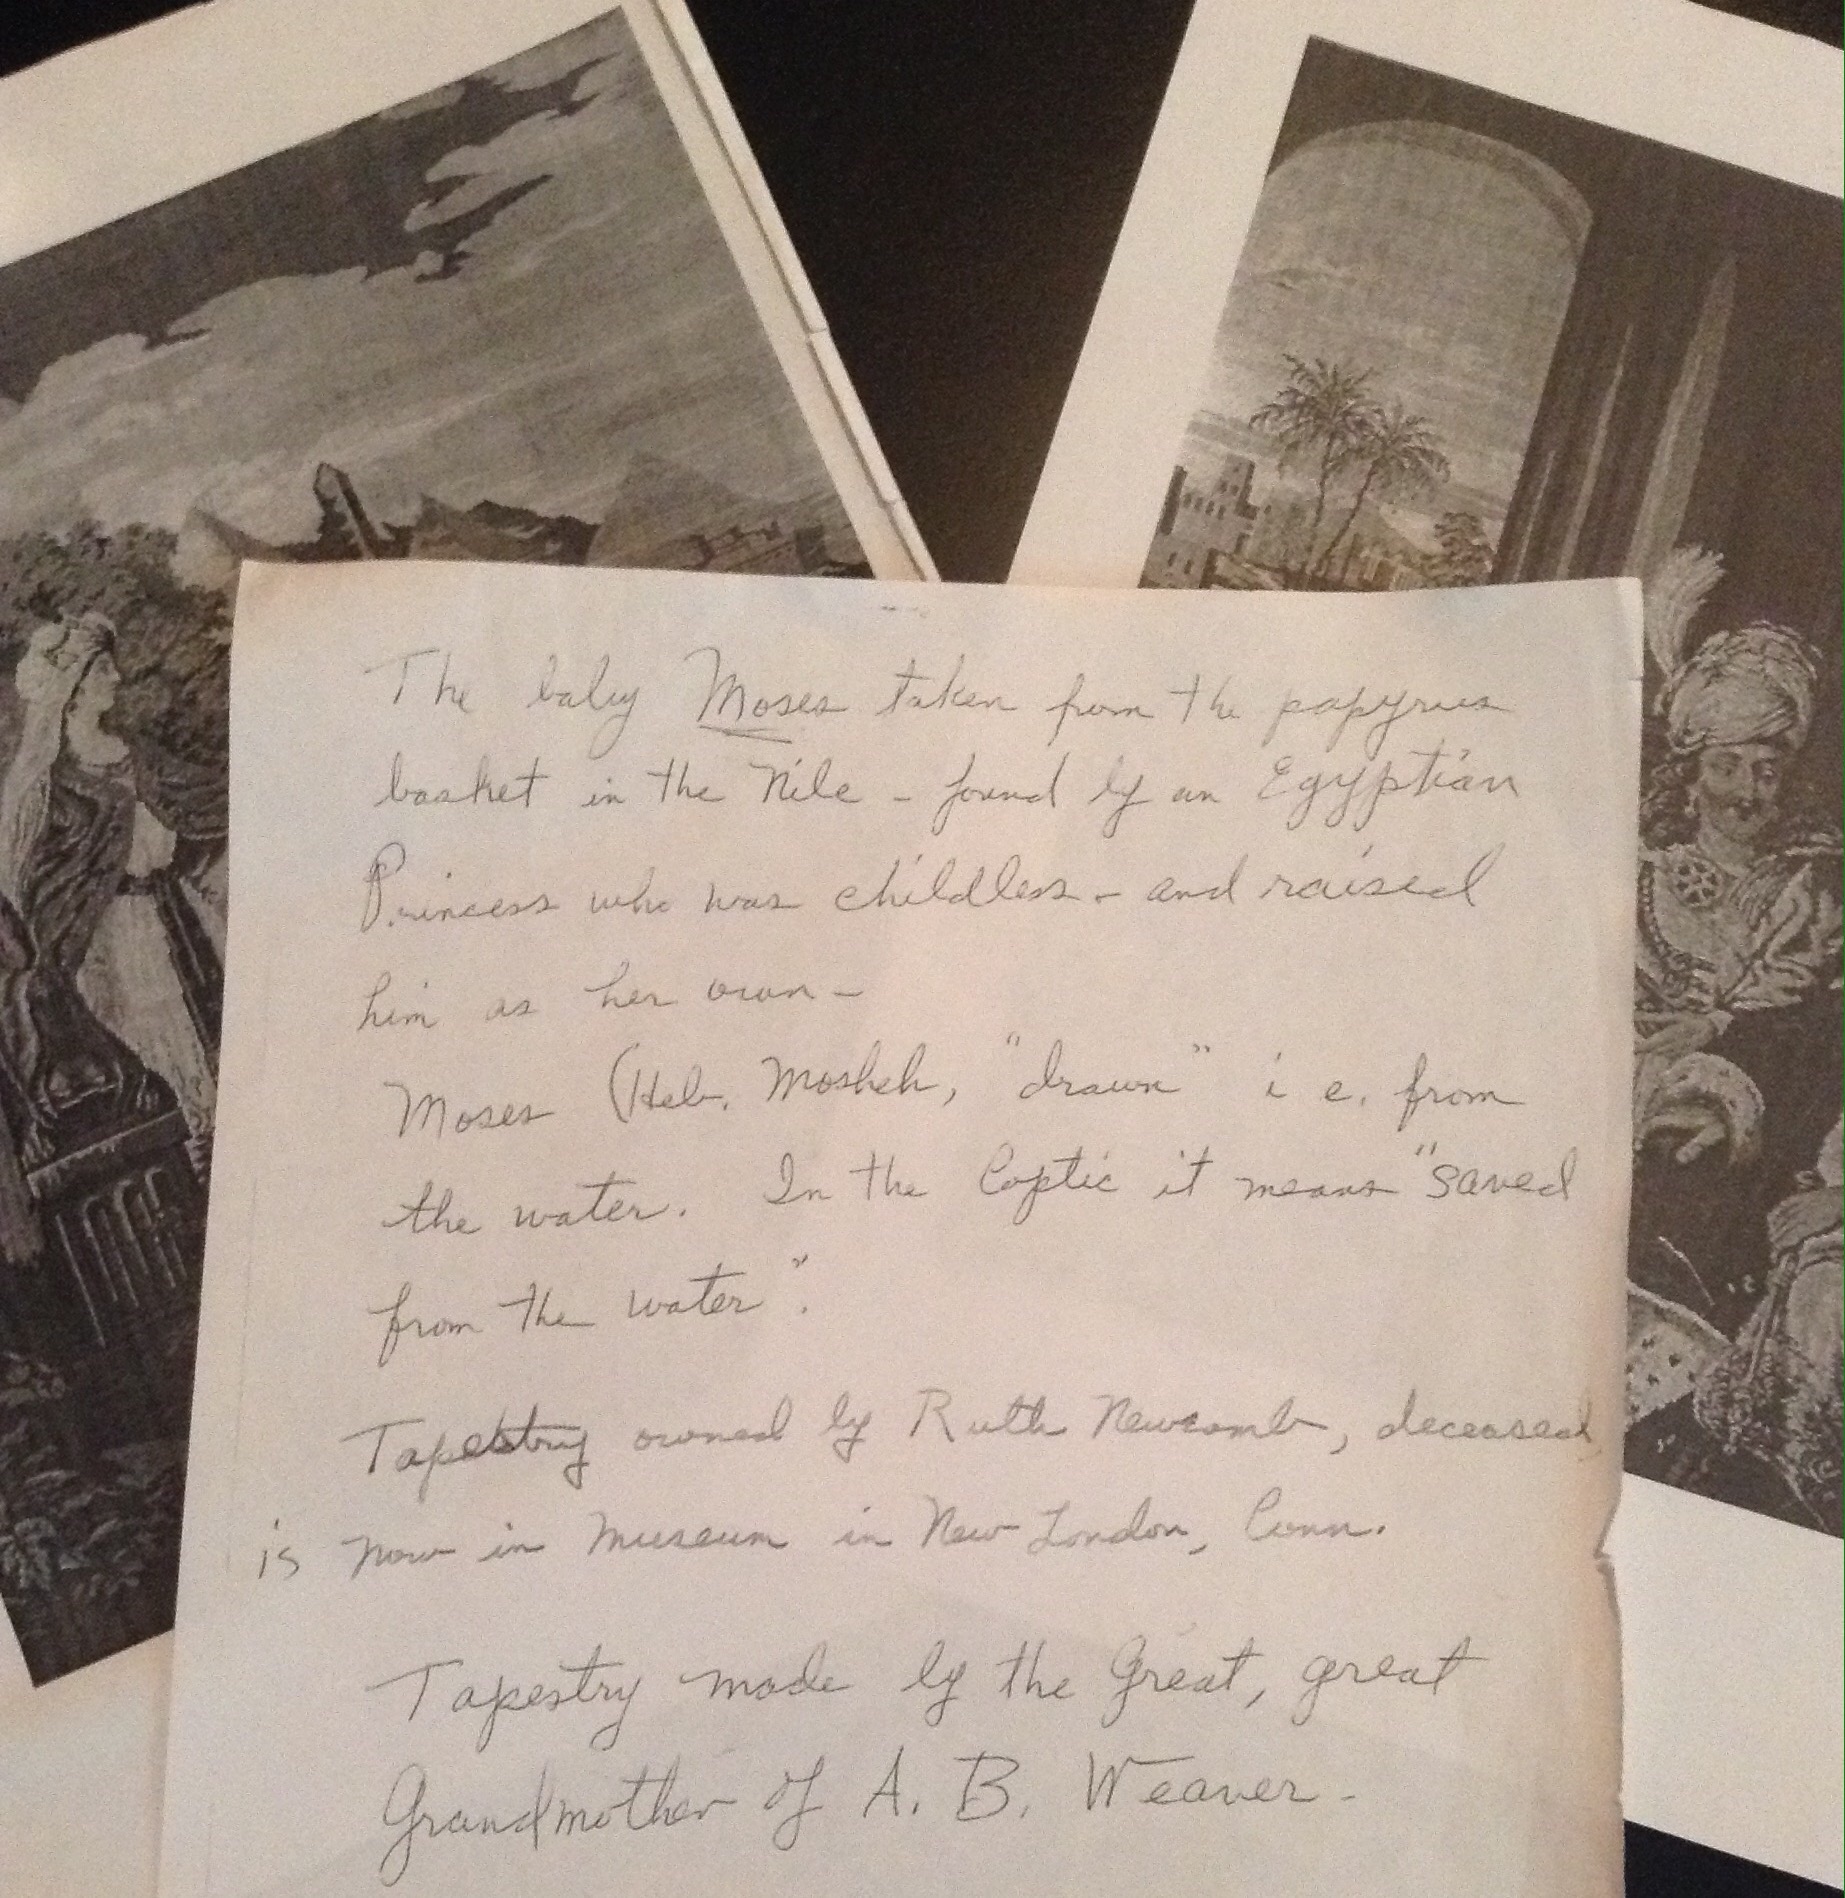 The baby Moses taken from the papyrus
basket in the Nile - found by an Egyptian
Princess who was childless - and raised
him as her own -
Moses (Heb. Mosheh, "drawn" i e. from
the water. In the Coptic it means "saved
from the water".
Tapestry owned by Ruth Newcomb, deceased,
is now in Museum in New London, Conn.
Tapestry made by the Great, great
Grandmother of A. B. Weaver -